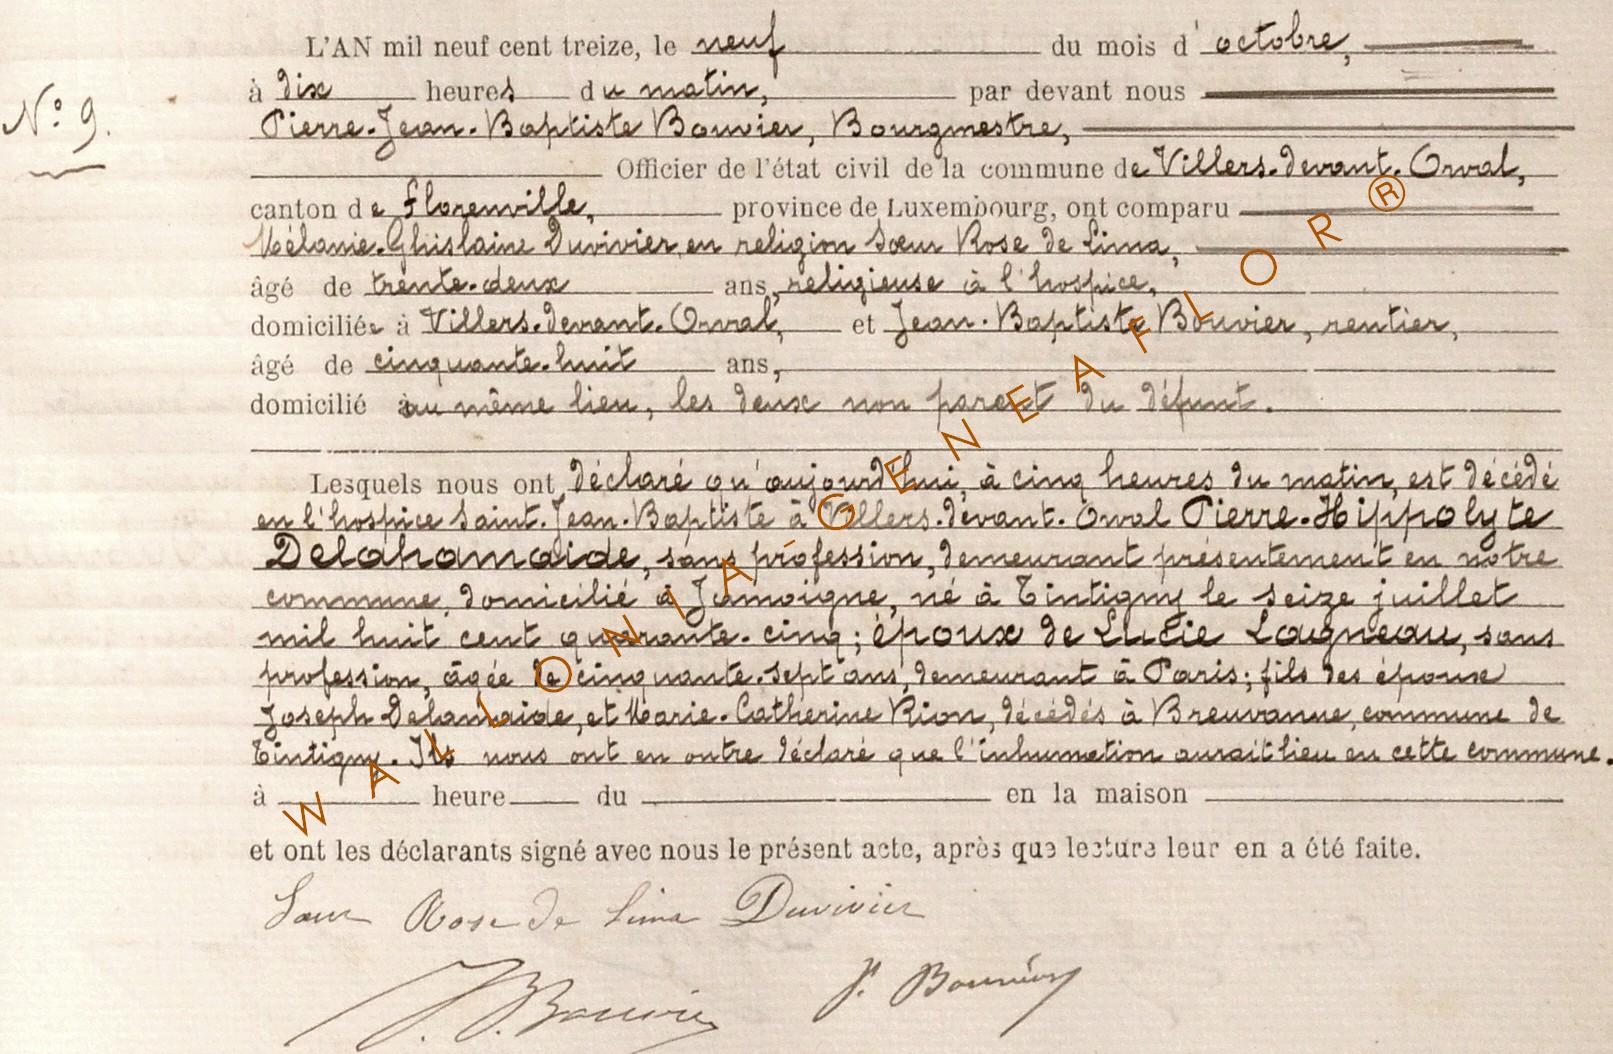 L'AN mil neuf cent treize, le neuf du mois d'octobre,
à dix heures du matin, par devant nous
N° 9.
Pierre-Jean-Baptiste Bouvier, Bourgmestre,
Officier de l'état civil de la commune de Villers-devant-Orval,
canton de Florenville, province de Luxembourg, ont comparu
Mélanie-Ghislaine Duvivier, en religion Sœur Rose de Lima,
âgé de trente-deux ans, religieuse à l'hospice,
domiciliée à Villers-devant-Orval, et Jean-Baptiste Bouvier, rentier,
âgé de cinquante-huit ans,
domicilié au même lieu, les deux non parent du défunt.
Lesquels nous ont déclaré qu'aujourd'hui, à cinq heures du matin, est décédé
en l'hospice Saint-Jean-Baptiste à Villers-devant-Orval Pierre-Hippolyte
Delahamaide, sans profession, demeurant présentement en notre
commune, domicilié à Jamoigne, né à Tintigny le seize juillet
mil huit cent quarante-cinq; époux de Lucie Laigneau, sans
profession, âgée de cinquante-sept ans, demeurant à Paris; fils des époux
Joseph Delamaide, et Marie-Catherine Rion, décédés à Breuvanne, commune de
Tintigny. Ils nous ont en outre déclaré que l'inhumation aurait lieu en cette commune.
à heure du en la maison
et ont les déclarants signé avec nous le présent acte, après que lecture leur en a été faite.
Sœur Rose de Lima Duvivier
J. B. Bouvier P. Bouvier
WALLONIA GENEAFLOR ®